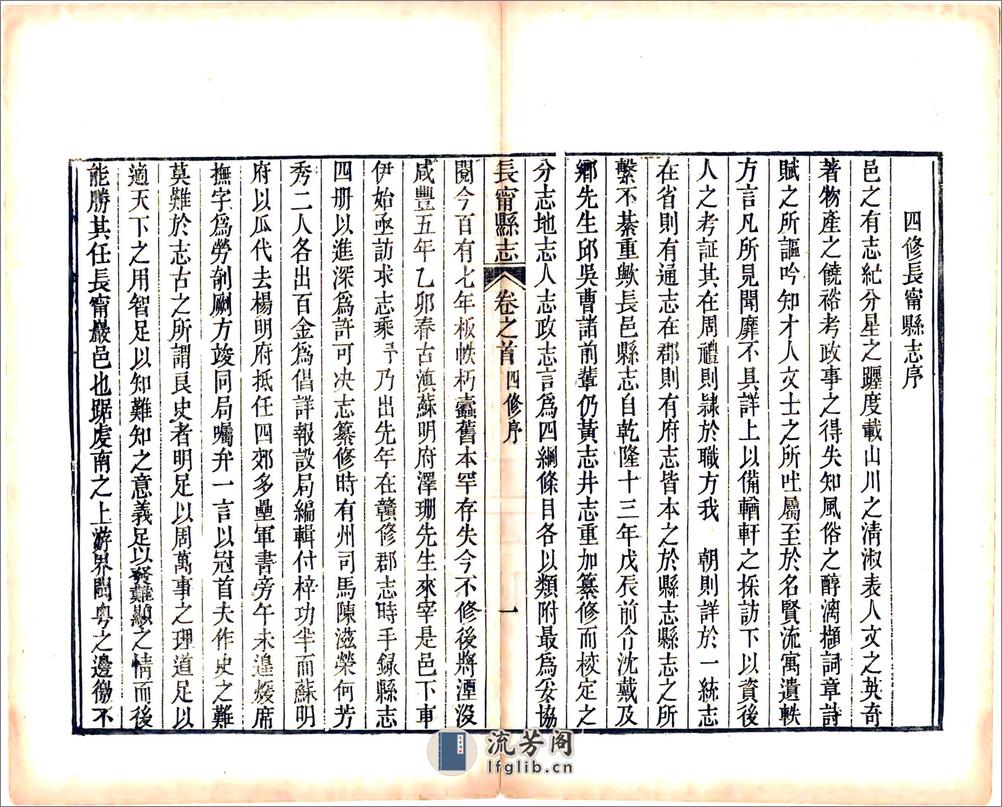 四修長甯縣志序
邑之有志紀分星之躔度載山川之清淑表人文之英奇
著物產之饒裕考政事之得失知風俗之醇漓擷詞章詩
賦之所謳吟知才人文士之所吐屬至於名賢流寓遺軼
方言凡所見聞靡不具詳上以備輶軒之採訪下以資後
人之考証其在周禮則隷於職方我　朝則詳於一統志
在省則有通志在郡則有府志皆本之於縣志縣志之所
繫不綦重歟長邑縣志自乾隆十三年戊辰前令沈戴及
鄉先生邱吳曹諸前輩仍黃志井志重加纂修而校定之
分志地志人志政志言爲四綱條目各以類附最爲妥協
長甯縣志　卷之首　四修序　一
閱今百有七年板帙朽蠹舊本罕存失今不修後將湮沒
咸豐五年乙卯春古滇蘇明府澤珊先生來宰是邑下車
伊始亟訪求志乘予乃出先年在贛修郡志時手錄縣志
四册以進深爲許可决志纂修時有州司馬陳滋榮何芳
秀二人各出百金爲倡詳報設局編輯付梓功半而蘇明
府以瓜代去楊明府抵任四郊多壘軍書旁午未遑煖席
撫字爲勞剞劂方竣同局囑弁一言以冠首夫作史之難
莫難於志古之所謂良史者明足以周萬事之理道足以
適天下之用智足以知難知之意義足以發難顯之情而後
能勝其任長甯巖邑也踞虔南之上游界閩粵之邊徼不
流芳阁
lfglib.cn